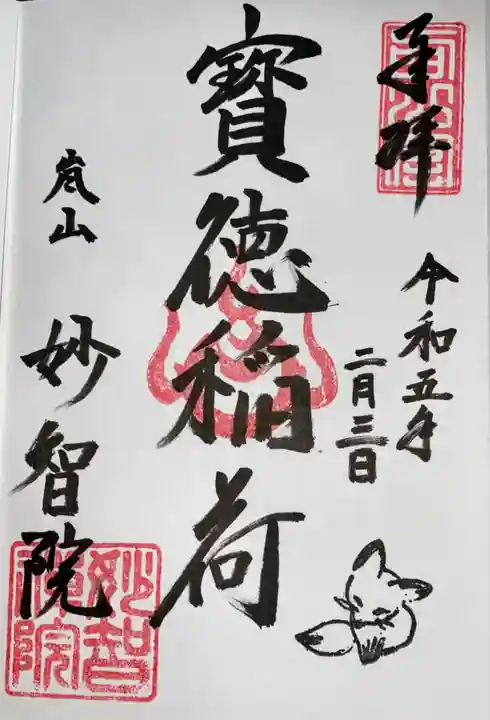 奉拝
令和五年
二月三日
寳徳稲荷
嵐山 妙智院
妙智
院